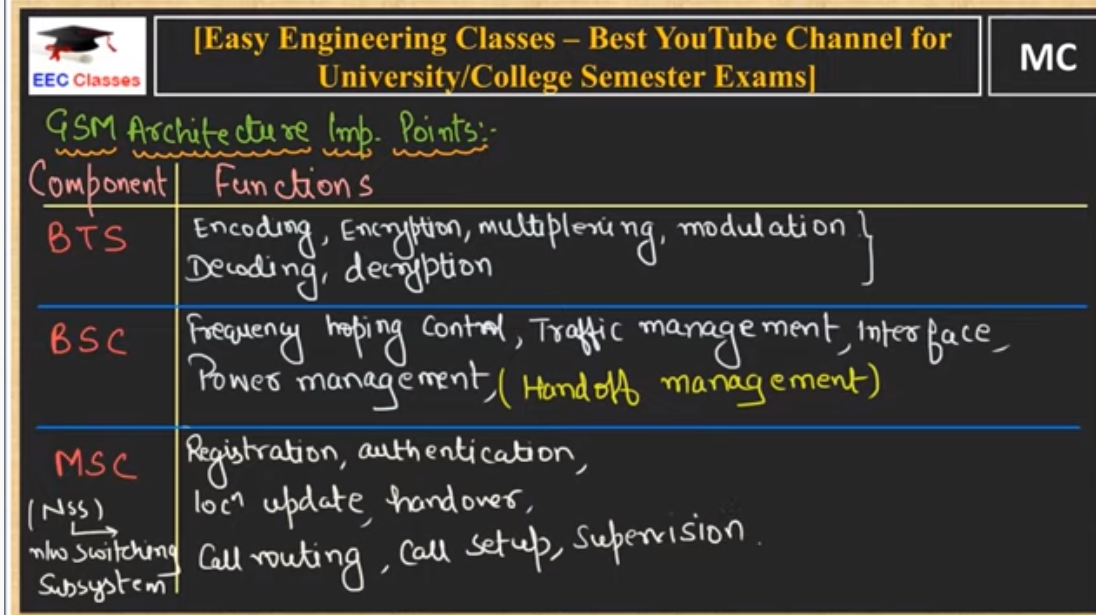 [Easy Engineering Classes – Best YouTube Channel for
University/College Semester Exams]
EEC Classes
MC
GSM Architecture Imp. Points:-
Component Functions
BTS
Encoding, Encryption, multiplexing, modulation }
Decoding, decryption
BSC
Frequency hoping Control, Traffic management, Interface,
Power management, (Handoff management)
MSC
(NSS)
n/w switching
Subsystem
Registration, authentication,
locⁿ update, handover,
Call routing, Call setup, Supervision.